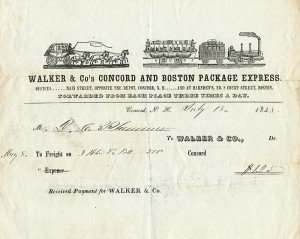 WALKER & Co's CONCORD AND BOSTON PACKAGE EXPRESS.
OFFICES......MAIN STREET, OPPOSITE THE DEPOT, CONCORD, N. H.....AND AT HARNDEN'S, NO. 8 COURT STREET, BOSTON.
FORWARDED FROM EACH PLACE THREE TIMES A DAY.
Concord, N. H. July 184
M
To WALKER & CO., Dr.
May To Freight on Concord
"Expense
$1.25
Received Payment for WALKER & Co.